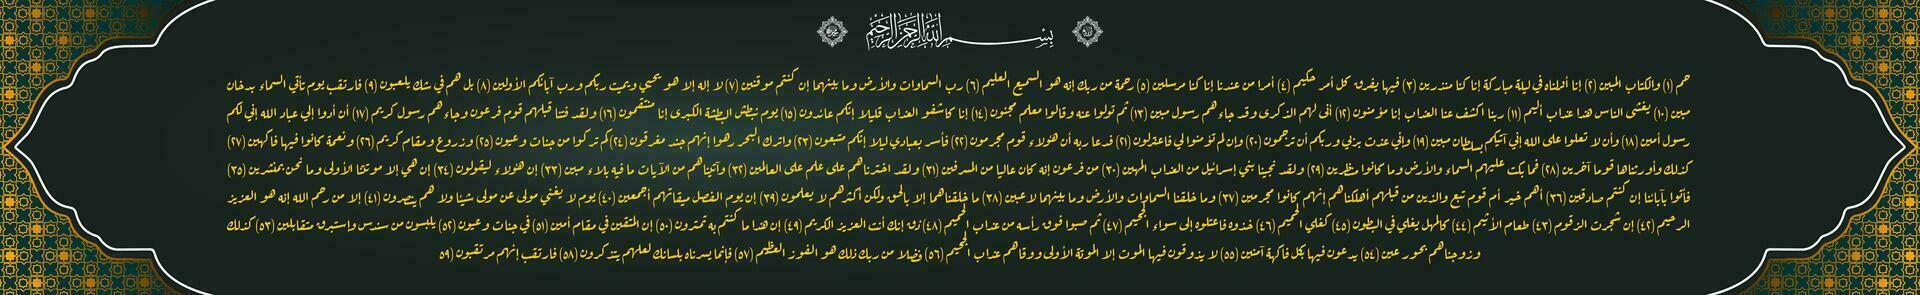 بسم الله الرحمن الرحيم
حم (١) والكتاب المبين (٢) إنا أنزلناه في ليلة مباركة إنا كنا منذرين (٣) فيها يفرق كل أمر حكيم (٤) أمرا من عندنا إنا كنا مرسلين (٥) رحمة من ربك إنه هو السميع العليم (٦) رب السماوات والأرض وما بينهما إن كنتم موقنين (٧) لا إله إلا هو يحيي ويميت ربكم ورب آبائكم الأولين (٨) بل هم في شك يلعبون (٩) فارتقب يوم تأتي السماء بدخان
مبين (١٠) يغشى الناس هذا عذاب أليم (١١) ربنا اكشف عنا العذاب إنا مؤمنون (١٢) أنى لهم الذكرى وقد جاءهم رسول مبين (١٣) ثم تولوا عنه وقالوا معلم مجنون (١٤) إنا كاشفو العذاب قليلا إنكم عائدون (١٥) يوم نبطش البطشة الكبرى إنا منتقمون (١٦) ولقد فتنا قبلهم قوم فرعون وجاءهم رسول كريم (١٧) أن أدوا إلي عباد الله إني لكم
رسول أمين (١٨) وأن لا تعلوا على الله إني آتيكم بسلطان مبين (١٩) وإني عذت بربي وربكم أن ترجمون (٢٠) وإن لم تؤمنوا لي فاعتزلون (٢١) فدعا ربه أن هؤلاء قوم مجرمون (٢٢) فأسر بعبادي ليلا إنكم متبعون (٢٣) واترك البحر رهوا إنهم جند مغرقون (٢٤) كم تركوا من جنات وعيون (٢٥) وزروع ومقام كريم (٢٦) ونعمة كانوا فيها فاكهين (٢٧)
كذلك وأورثناها قوما آخرين (٢٨) فما بكت عليهم السماء والأرض وما كانوا منظرين (٢٩) ولقد نجينا بني إسرائيل من العذاب المهين (٣٠) من فرعون إنه كان عاليا من المسرفين (٣١) ولقد اخترناهم على علم على العالمين (٣٢) وآتيناهم من الآيات ما فيه بلاء مبين (٣٣) إن هؤلاء ليقولون (٣٤) إن هي إلا موتتنا الأولى وما نحن بمنشرين (٣٥)
فأتوا بآبائنا إن كنتم صادقين (٣٦) أهم خير أم قوم تبع والذين من قبلهم أهلكناهم إنهم كانوا مجرمين (٣٧) وما خلقنا السماوات والأرض وما بينهما لاعبين (٣٨) ما خلقناهما إلا بالحق ولكن أكثرهم لا يعلمون (٣٩) إن يوم الفصل ميقاتهم أجمعين (٤٠) يوم لا يغني مولى عن مولى شيئا ولا هم ينصرون (٤١) إلا من رحم الله إنه هو العزيز
الرحيم (٤٢) إن شجرت الزقوم (٤٣) طعام الأثيم (٤٤) كالمهل يغلي في البطون (٤٥) كغلي الحميم (٤٦) خذوه فاعتلوه إلى سواء الجحيم (٤٧) ثم صبوا فوق رأسه من عذاب الحميم (٤٨) ذق إنك أنت العزيز الكريم (٤٩) إن هذا ما كنتم به تمترون (٥٠) إن المتقين في مقام أمين (٥١) في جنات وعيون (٥٢) يلبسون من سندس وإستبرق متقابلين (٥٣) كذلك
وزوجناهم بحور عين (٥٤) يدعون فيها بكل فاكهة آمنين (٥٥) لا يذوقون فيها الموت إلا الموتة الأولى ووقاهم عذاب الجحيم (٥٦) فضلا من ربك ذلك هو الفوز العظيم (٥٧) فإنما يسرناه بلسانك لعلهم يتذكرون (٥٨) فارتقب إنهم مرتقبون (٥٩